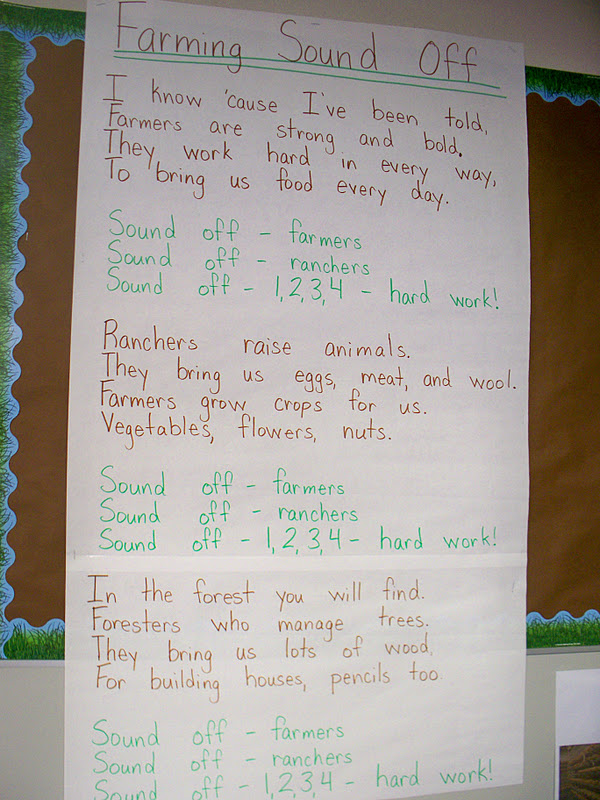 Farming Sound Off
I know 'cause I've been told,
Farmers are strong and bold.
They work hard in every way,
To bring us food every day.
Sound off - farmers
Sound off - ranchers
Sound off - 1,2,3,4 - hard work!
Ranchers raise animals.
They bring us eggs, meat, and wool.
Farmers grow crops for us.
Vegetables, flowers, nuts.
Sound off - farmers
Sound off - ranchers
Sound off - 1,2,3,4 - hard work!
In the forest you will find.
Foresters who manage trees.
They bring us lots of wood,
For building houses, pencils too.
Sound off - farmers
Sound off - ranchers
Sound off - 1,2,3,4 - hard work!